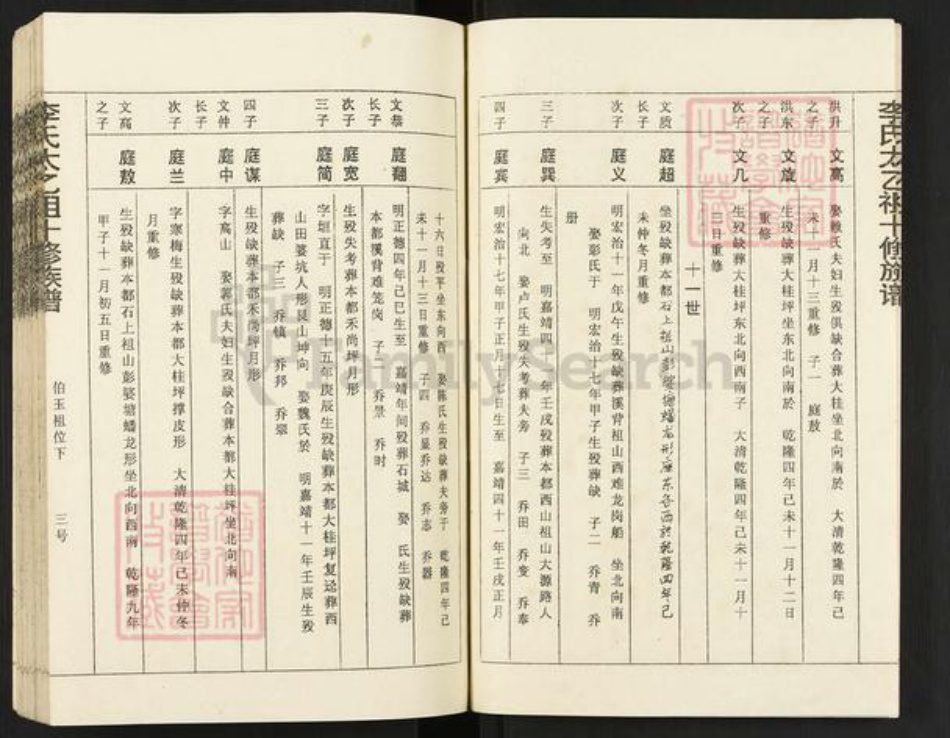 李氏太乙祖十修族谱
洪升之子 文高 娶赖氏夫妇生殁俱缺合葬大桂坐北向南於 大清乾隆四年己
未十一月十三重修 子一 庭敖
洪东之子 文旋 生殁缺葬大桂坪坐东北向南於 乾隆四年己未十一月十二日
重修
次子 文几 生殁缺葬大桂坪东北向西南子 大清乾隆四年己未十一月十
三日重修
十一世
文质长子 庭超 坐殁缺葬本都石上祖山彭婆塘蟠龙形
未仲冬月重修
次子 庭义 明宏治十一年戊午生殁缺葬溪背祖山西难龙岗船 坐北向南
娶彭氏于 明宏治十七年甲子生殁葬缺 子二 乔青 乔
册
三子 庭巽 生失考至 明嘉靖四十一年壬戌殁葬本都西山祖山大源路人
向北 娶卢氏生殁失考葬夫旁 子三 乔田 乔变 乔奉
四子 庭宾 明宏治十七年甲子正月十七日生至 嘉靖四十一年壬戌正月
十六日殁平坐东向西 娶陈氏生殁缺葬夫旁于 乾隆四年己
未十一月十三日重修 子四 乔显乔达 乔志 乔器
文恭长子 庭翻 明正德四年己巳生至 嘉靖年间殁葬石城 娶 氏生殁缺葬
本都溪背难笼岗 子二 乔景 乔时
次子 庭宽 生殁失考葬本都禾尚坪月形
三子 庭简 字垣直于 明正德十五年庚辰生殁缺葬本都大桂坪复迳葬西
山田婆坑人形艮山坤向 娶魏氏於 明嘉靖十一年壬辰生殁
葬缺 子三 乔镇 乔邦 乔翠
四子 庭谋 生殁缺葬本都禾尚坪月形
文仲长子 庭中 字高山 娶郭氏夫妇生殁缺合葬本都大桂坪坐北向南
次子 庭兰 字寒梅生殁缺葬本都大桂坪撑皮形 大清乾隆四年己未仲冬
月重修
文高之子 庭敖 生殁缺葬本都石上祖山彭婆塘蟠龙形坐北向西南 乾隆九年
甲子十一月初五日重修
伯玉祖位下 三号
李氏太乙祖十修族谱
FamilySearch